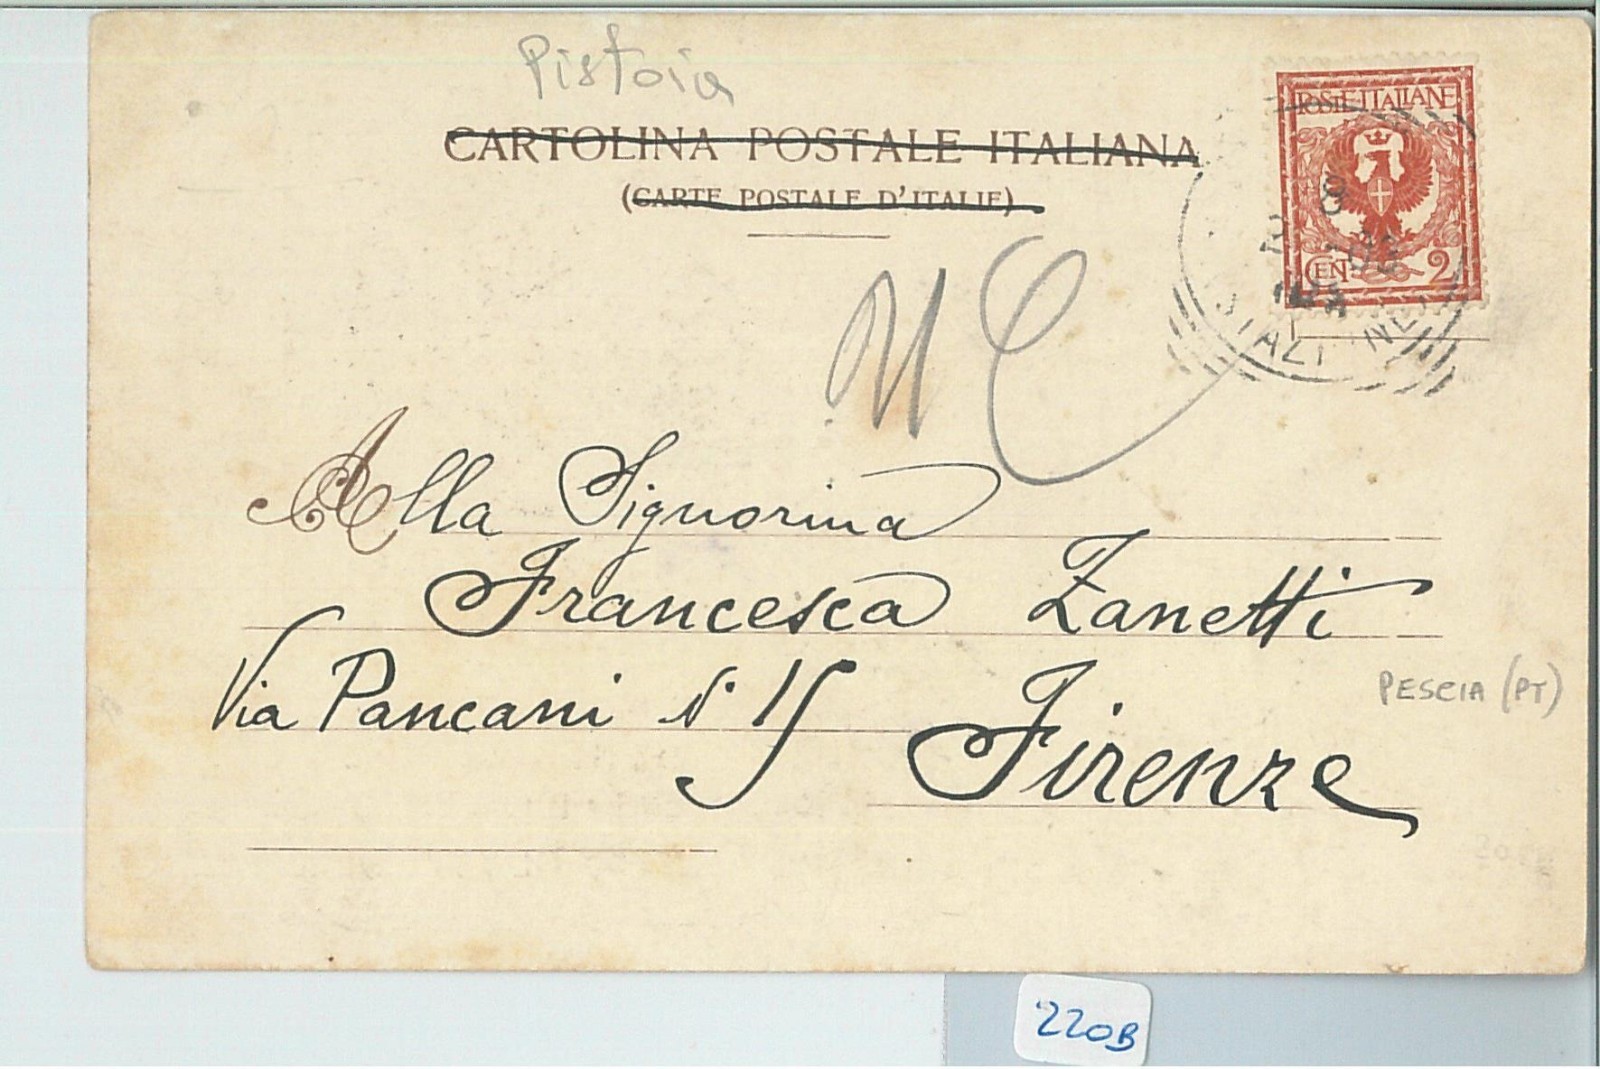 Pistoia
CARTOLINA POSTALE ITALIANA
(CARTE POSTALE D'ITALIE)
POSTE ITALIANE
CENT 2
Alla Signorina
Francesca Zanetti
Via Pancani N. 15
Firenze
PESCIA (PT)
220B